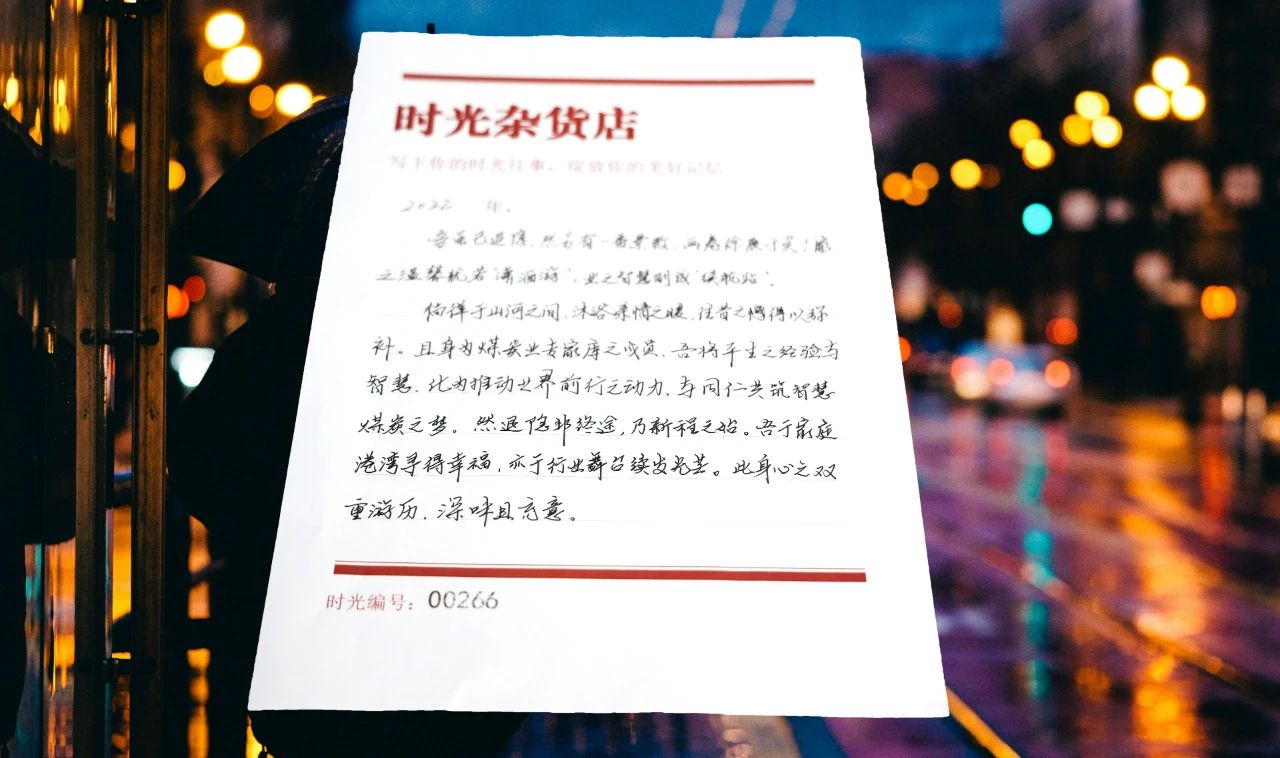 时光杂货店
写下你的时光往事，绽放你的美好记忆
2022 年，
吾虽已退隐，然另有一番景致，两者除展于矣！家
之温馨犹若'潇洒游'，业之智慧则成'续航站'。
徜徉于山河之间，沐浴亲情之暖，往昔之憾得以弥
补。且身为煤炭业专家库之成员，吾将平生之经验与
智慧，化为推动业界前行之动力，与同仁共筑智慧
煤炭之梦。然退隐非终途，乃新程之始。吾于家庭
港湾寻得幸福，亦于行业舞台续发光芒。此身心之双
重游历，深味且充意。
时光编号：00266